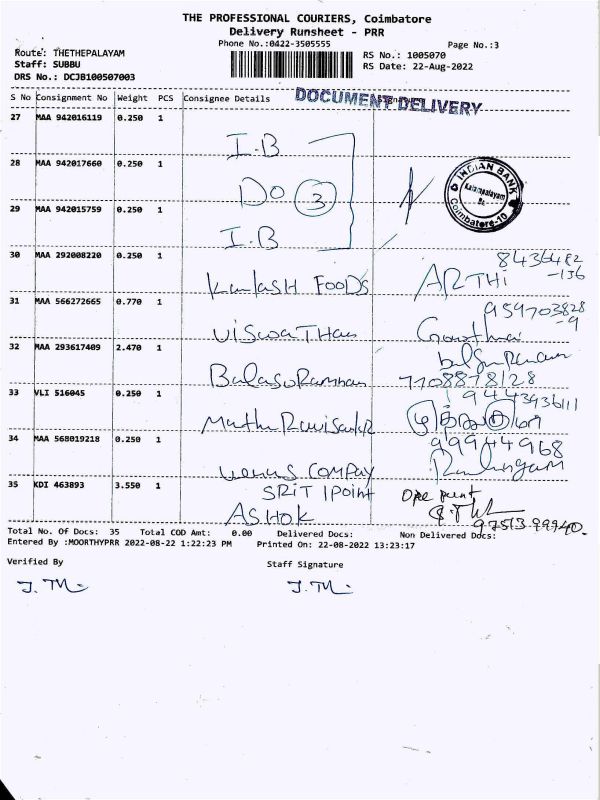 THE PROFESSIONAL COURIERS, Coimbatore
Delivery Runsheet - PRR
Phone No.:0422-3505555
Page No.:3
Route: THETHEPALAYAM
RS No.: 1005070
Staff: SUBBU
RS Date: 22-Aug-2022
DRS No.: DCJB100507003
S No Consignment No Weight PCS Consignee Details
DOCUMENT DELIVERY
27 MAA 942016119 0.250 1
I.B
28 MAA 942017660 0.250 1
DO 3
INDIAN BANK
Kalampalayam
Br.
Coimbatore-10
29 MAA 942015759 0.250 1
I.B
30 MAA 292008220 0.250 1
8436482
-136
FOODS ARTHI
31 MAA 566272665 0.770 1
959703828
-9
Viswathan
32 MAA 293617409 2.470 1
7708878128
33 VLI 516045 0.250 1
9443936111
34 MAA 568019218 0.250 1
99944968
Venus COMPAY
35 KDI 463893 3.550 1
SRIT 1Point
ASHOK
97513 99940.
Total No. Of Docs: 35 Total COD Amt: 0.00 Delivered Docs: Non Delivered Docs:
Entered By :MOORTHYPRR 2022-08-22 1:22:23 PM Printed On: 22-08-2022 13:23:17
Verified By
Staff Signature